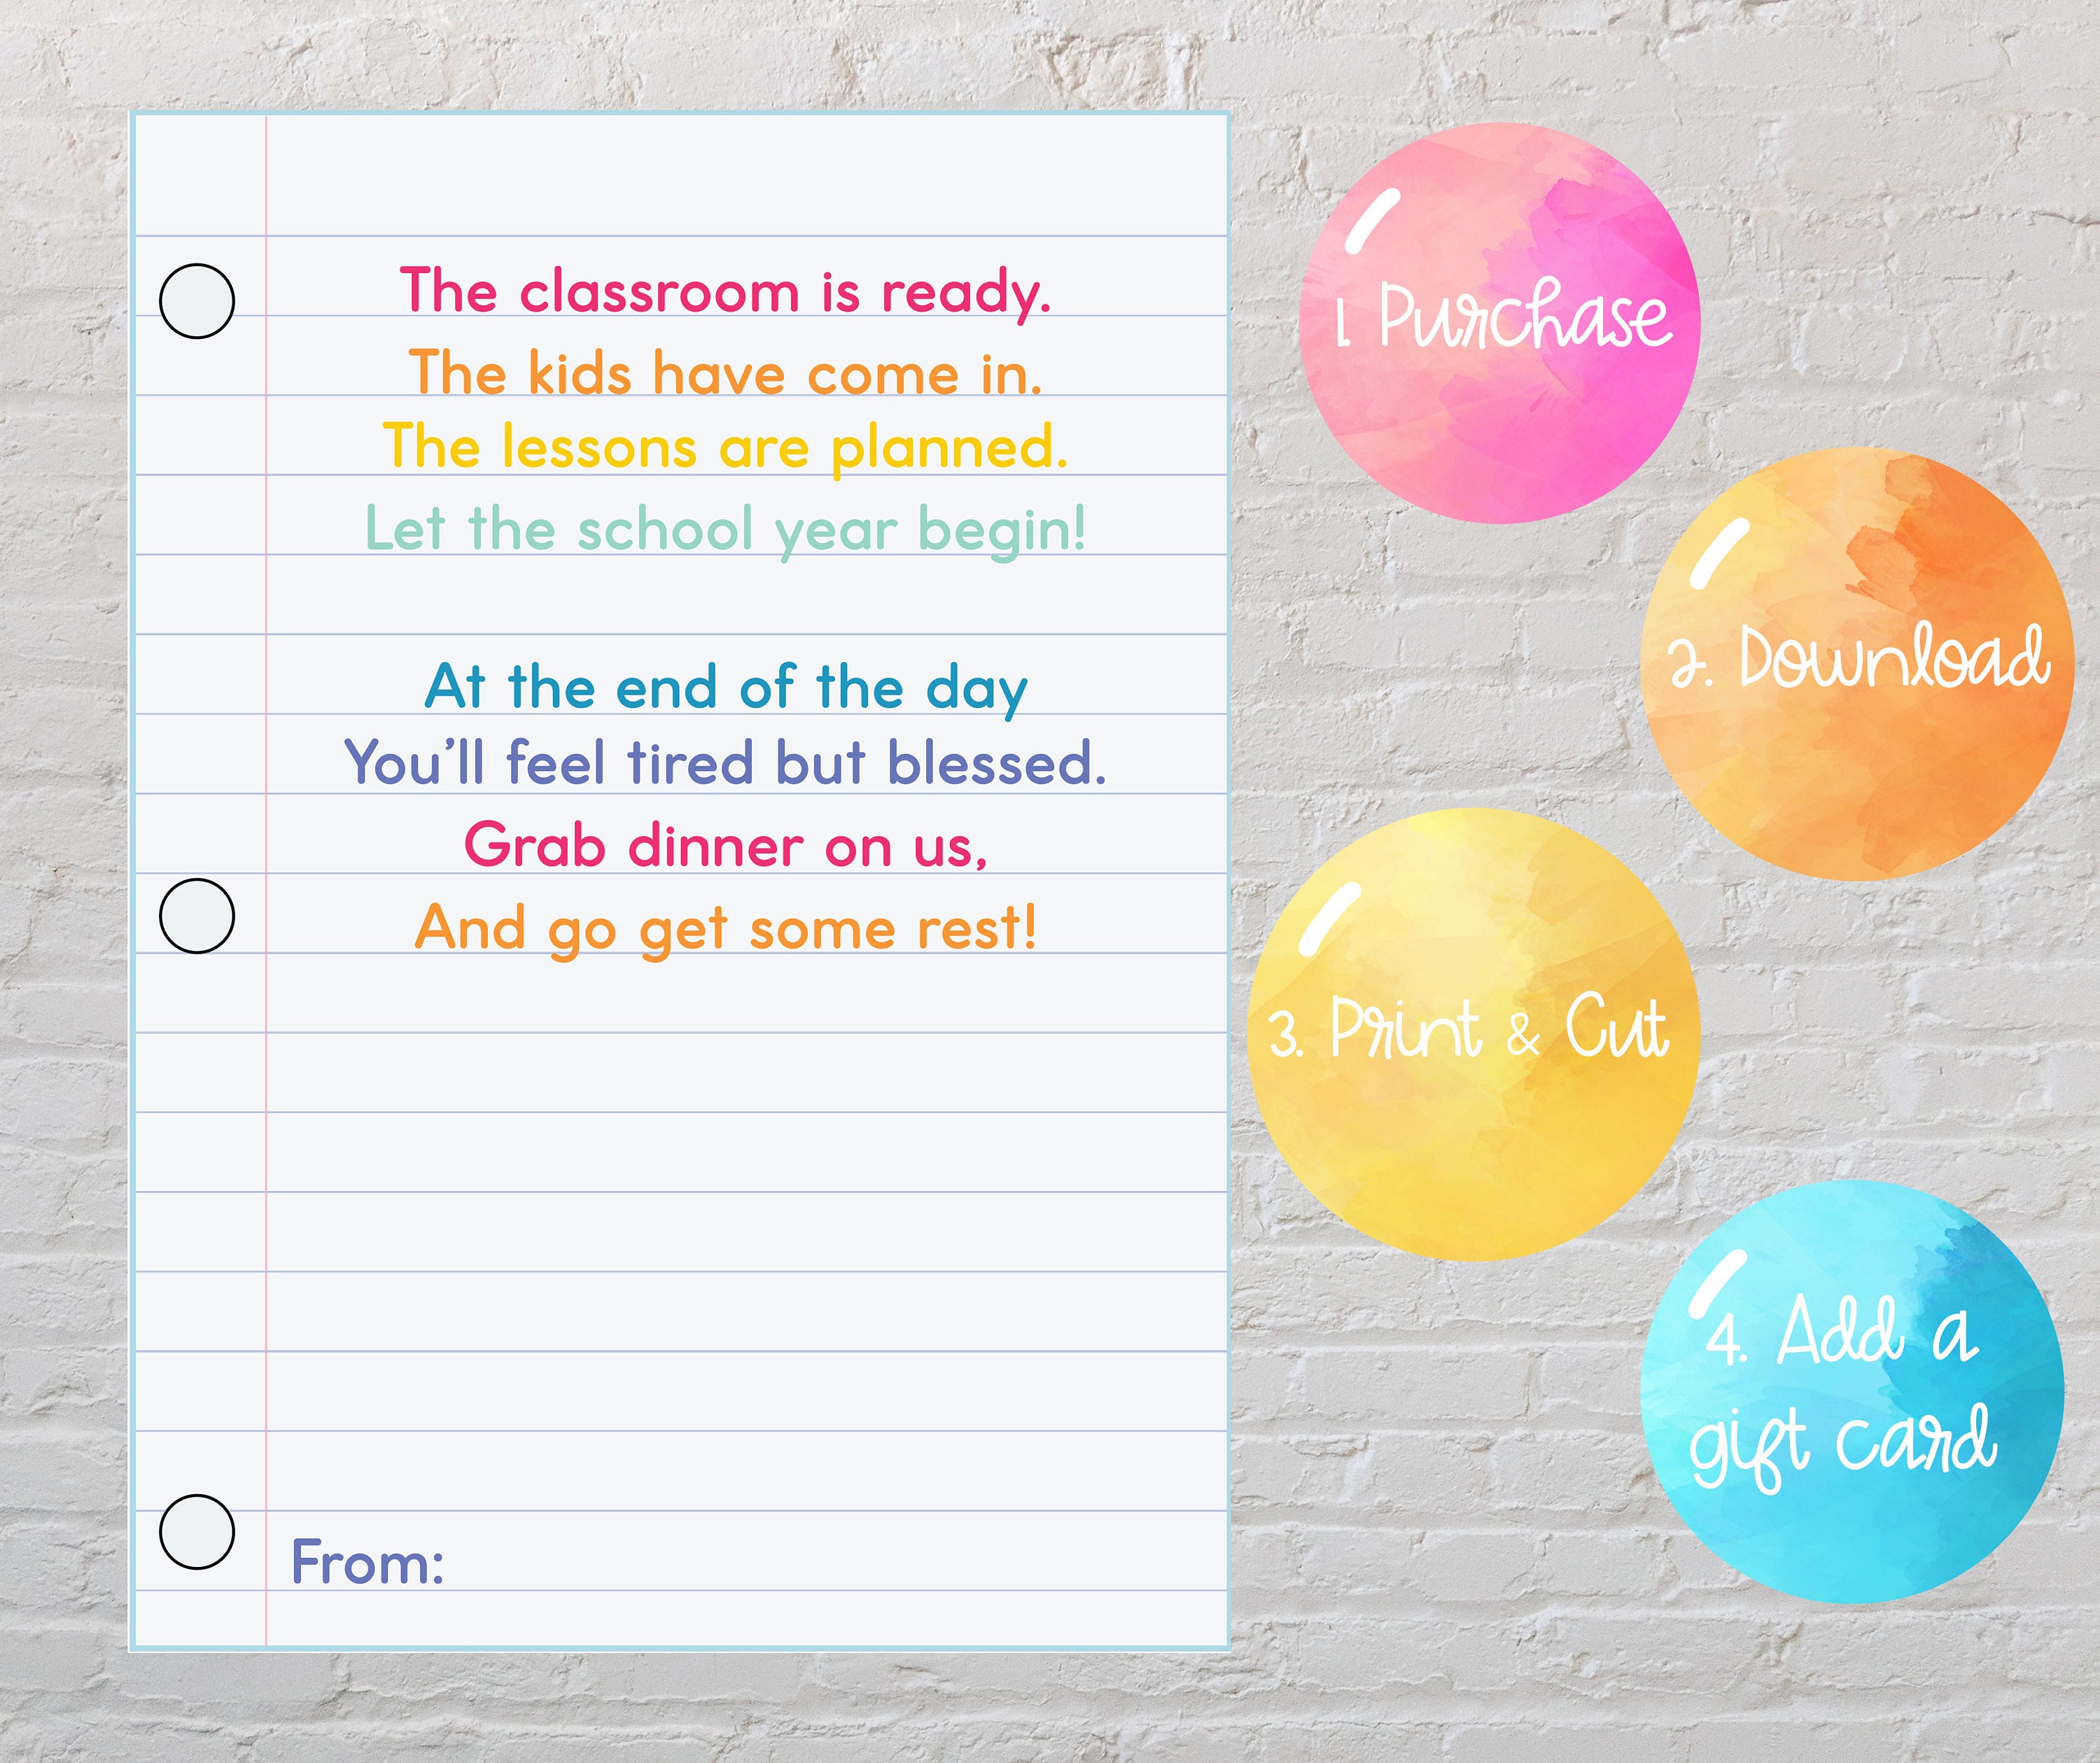 The classroom is ready.
The kids have come in.
The lessons are planned.
Let the school year begin!
At the end of the day
You'll feel tired but blessed.
Grab dinner on us,
And go get some rest!
From:
1. Purchase
2. Download
3. Print & Cut
4. Add a
gift card